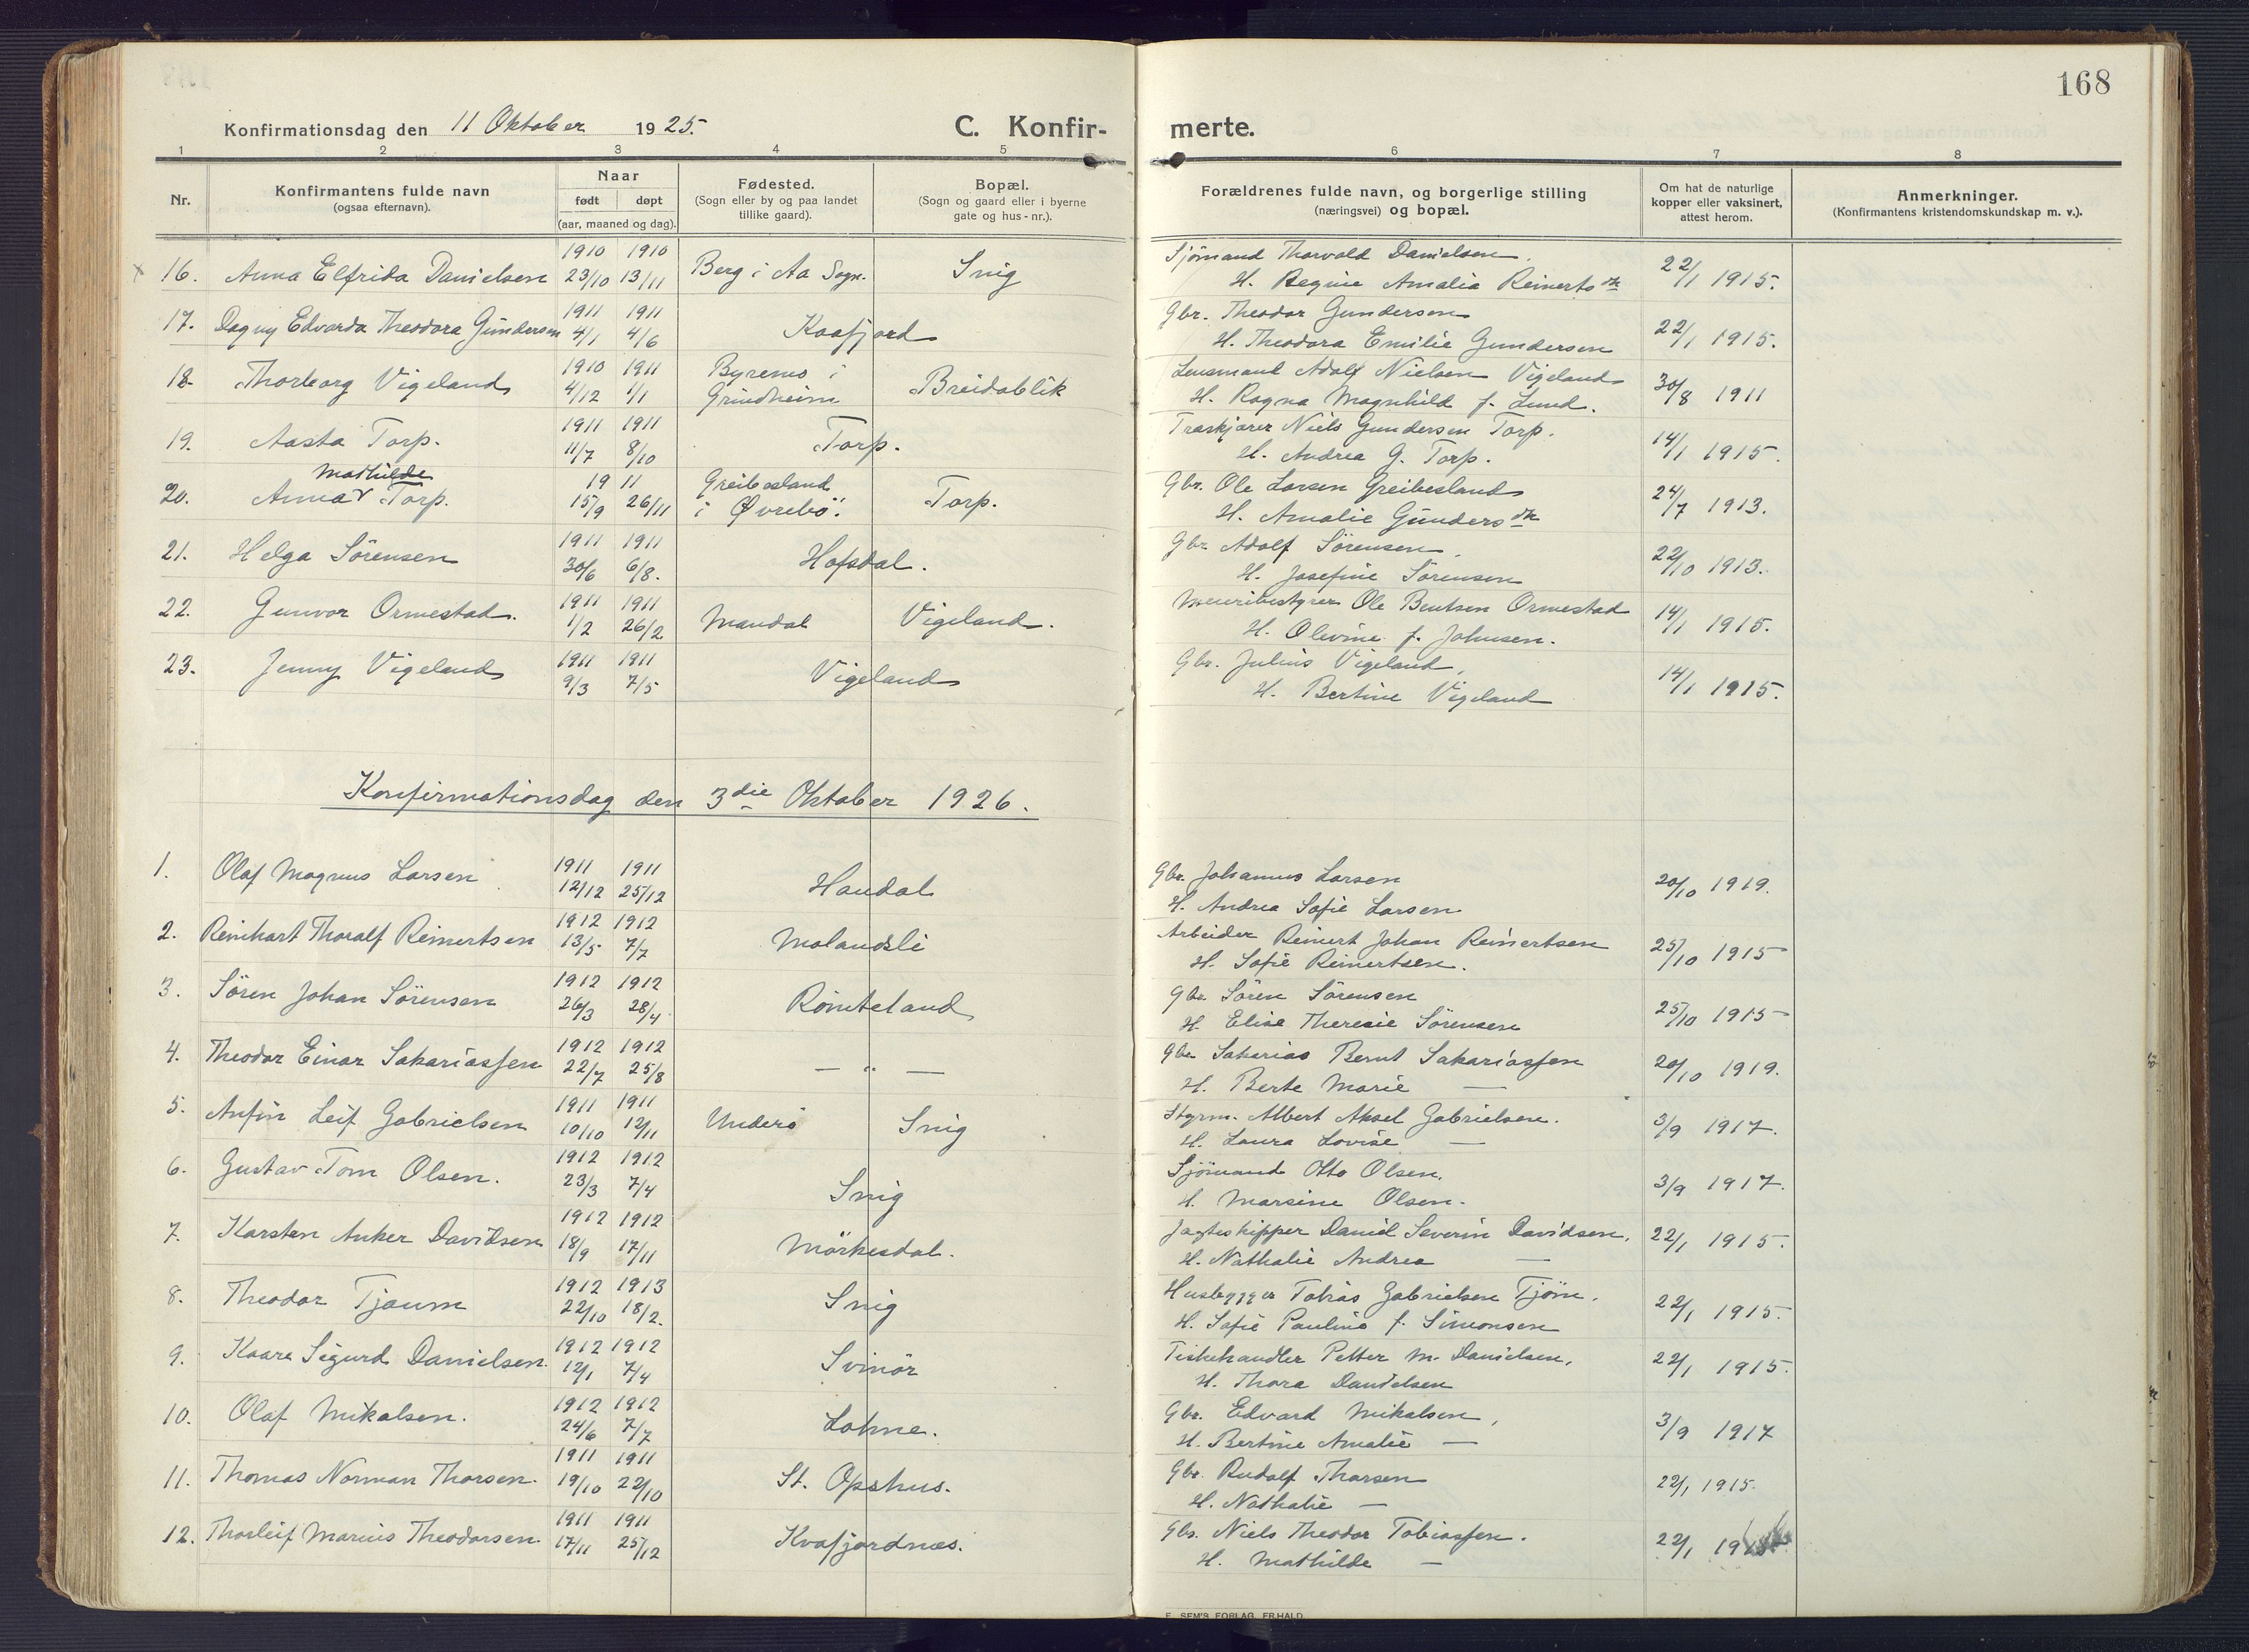 168
Konfirmationsdag den 11 Oktober 1925.
C. Konfir-merte.
1 2 3 4 5 6 7 8
Nr.
Konfirmantens fulde navn
(ogsaa efternavn).
Naar
født døpt
(aar, maaned og dag).
Fødested.
(Sogn eller by og paa landet
tillike gaard).
Bopæl.
(Sogn og gaard eller i byerne
gate og hus-nr.).
Forældrenes fulde navn, og borgerlige stilling
(næringsvei) og bopæl.
Om hat de naturlige
kopper eller vaksinert,
attest herom.
Anmerkninger.
(Konfirmantens kristendomskundskap m. v.).
1910 1910 Sjömand Thorvald Danielsen.
x 16. Anna Elfrida Danielsen 23/10 13/11 Berg i Aa Sogn. Snig H. Regine Amalia Reinertsdtr 22/1 1915.
1911 1911 Gbr. Theodor Gundersen
17. Dagny Edvarda Theodora Gundersen 4/1 4/6 Kaafjord H. Theodora Emilie Gundersen 22/1 1915.
1910 1911 Byremo i Lensmand Adolf Nielsen Vigeland
18. Thorborg Vigeland 4/12 1/1 Grindheim Breidablik H. Ragna Magnhild f. Lund. 30/8 1911
1911 1911 Niels Gundersen Torp.
19. Aasta Torp. 11/7 8/10 Torp. H. Andrea G. Torp. 14/1 1915.
Mathilde 19 11 Greibesland Gbr. Ole Larsen Greibesland
20. Anna v Torp. 15/9 26/11 i Øvrebö. Torp. H. Amalie Gundersdtr 24/7 1913.
1911 1911 Gbr. Adolf Sörensen.
21. Helga Sörensen 30/6 6/8. Hofsdal. H. Josefine Sörensen 22/10 1913.
1911 1911 Meieribestyrer Ole Bentsen Ormestad
22. Gunvor Ormestad. 1/2 26/2 Mandal Vigeland. H. Olevine f. Johnsen. 14/1 1915.
1911 1911 Gbr. Julius Vigeland,
23. Jenny Vigeland 9/3 7/5 Vigeland H. Bertine Vigeland 14/1 1915.
Konfirmationsdag den 3die Oktober 1926.
1911 1911 Gbr. Johannes Larsen
1. Olaf Magnus Larsen 12/12 25/12 Haudal H. Andrea Sofie Larsen 20/10 1919.
1912 1912 Arbeider Reinert Johan Reinertsen
2. Reinhart Thoralf Reinertsen 13/5 7/7 Molandsli H. Sofie Reinertsen. 25/10 1915
1912 1912 Gbr. Sören Sörensen
3. Sören Johan Sörensen 26/3 28/4 Röinteland H. Elise Theresie Sörensen 25/10 1915
1912 1912 Gbr. Sakarias Bernt Sakariassen
4. Theodor Einar Sakariassen 22/7 25/8 — " — H. Berte Marie — 20/10 1919.
1911 1911 Styrm. Albert Aksel Gabrielsen.
5. Anfin Leif Gabrielsen 10/10 12/11 Underö Snig H. Laura Lovise — 3/9 1917.
1912 1912 Sjömand Otto Olsen.
6. Gustav Tom Olsen. 23/3 7/4 Snig H. Marsine Olsen. 3/9 1917.
1912 1912 Jagteskipper Daniel Severin Davidsen.
7. Karsten Anker Davidsen 18/9 17/11 Mörkesdal. H. Nathalie Andrea — 22/1 1915.
1912 1913 Husbygger Tobias Gabrielsen Tjöm.
8. Theodor Tjaum 22/10 18/2. Snig H. Sofie Pauline f. Simonsen 22/1 1915.
1912 1912 Fiskehandler Petter M. Danielsen.
9. Kaare Sigurd Danielsen. 12/1 7/4 Svinör H. Thora Danielsen 22/1 1915.
1912 1912 Gbr. Edvard Mikalsen,
10. Olaf Mikalsen. 24/6 7/7 Lohne. H. Bertine Amalie — 3/9 1917
1911 1911 Gbr. Rudolf Thorsen
11. Thomas Norman Thorsen. 19/10 22/10 St. Opshus. H. Nathalie — 22/1 1915.
1911 1911 Gbr. Niels Theodor Tobiassen.
12. Thorleif Marius Theodorsen. 17/11 25/12 Kvafjordnes. H. Mathilde — 22/1 1915
E. SEM'S FORLAG, FR.HALD